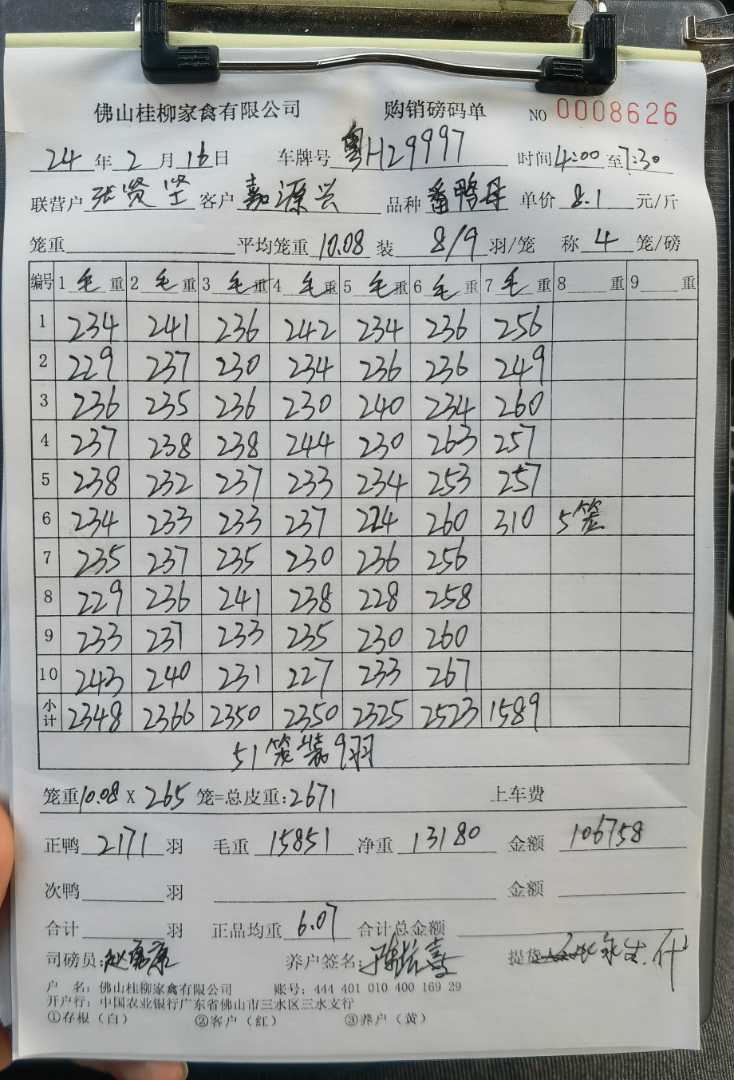 佛山桂柳家禽有限公司 购销磅码单 NO 0008626
24 年 2 月 16 日 车牌号 粤H29997 时间 4:00 至 7:30
联营户 张贤坚 客户 嘉源兴 品种 番鸭母 单价 8.1 元/斤
笼重 平均笼重 10.08 装 8/9 羽/笼 称 4 笼/磅
编号 1 毛 重 2 毛 重 3 毛 重 4 毛 重 5 毛 重 6 毛 重 7 毛 重 8 重 9 重
1 234 241 236 242 234 236 256
2 229 237 230 234 236 236 249
3 236 235 236 230 240 234 260
4 237 238 238 244 230 263 257
5 238 232 237 233 234 253 257
6 234 233 233 237 224 260 310 5笼
7 235 237 235 230 236 256
8 229 236 241 238 228 258
9 233 237 233 235 230 260
10 243 240 231 227 233 267
小计 2348 2366 2350 2350 2325 2523 1589
51笼装9羽
笼重 10.08 X 265 笼=总皮重: 2671 上车费
正鸭 2171 羽 毛重 15851 净重 13180 金额 106758
次鸭 羽 金额
合计 羽 正品均重 6.07 合计总金额
司磅员: 养户签名 提货
户 名: 佛山桂柳家禽有限公司 账号: 444 401 010 400 169 29
开户行: 中国农业银行广东省佛山市三水区三水支行
①存根（白） ②客户（红） ③养户（黄）